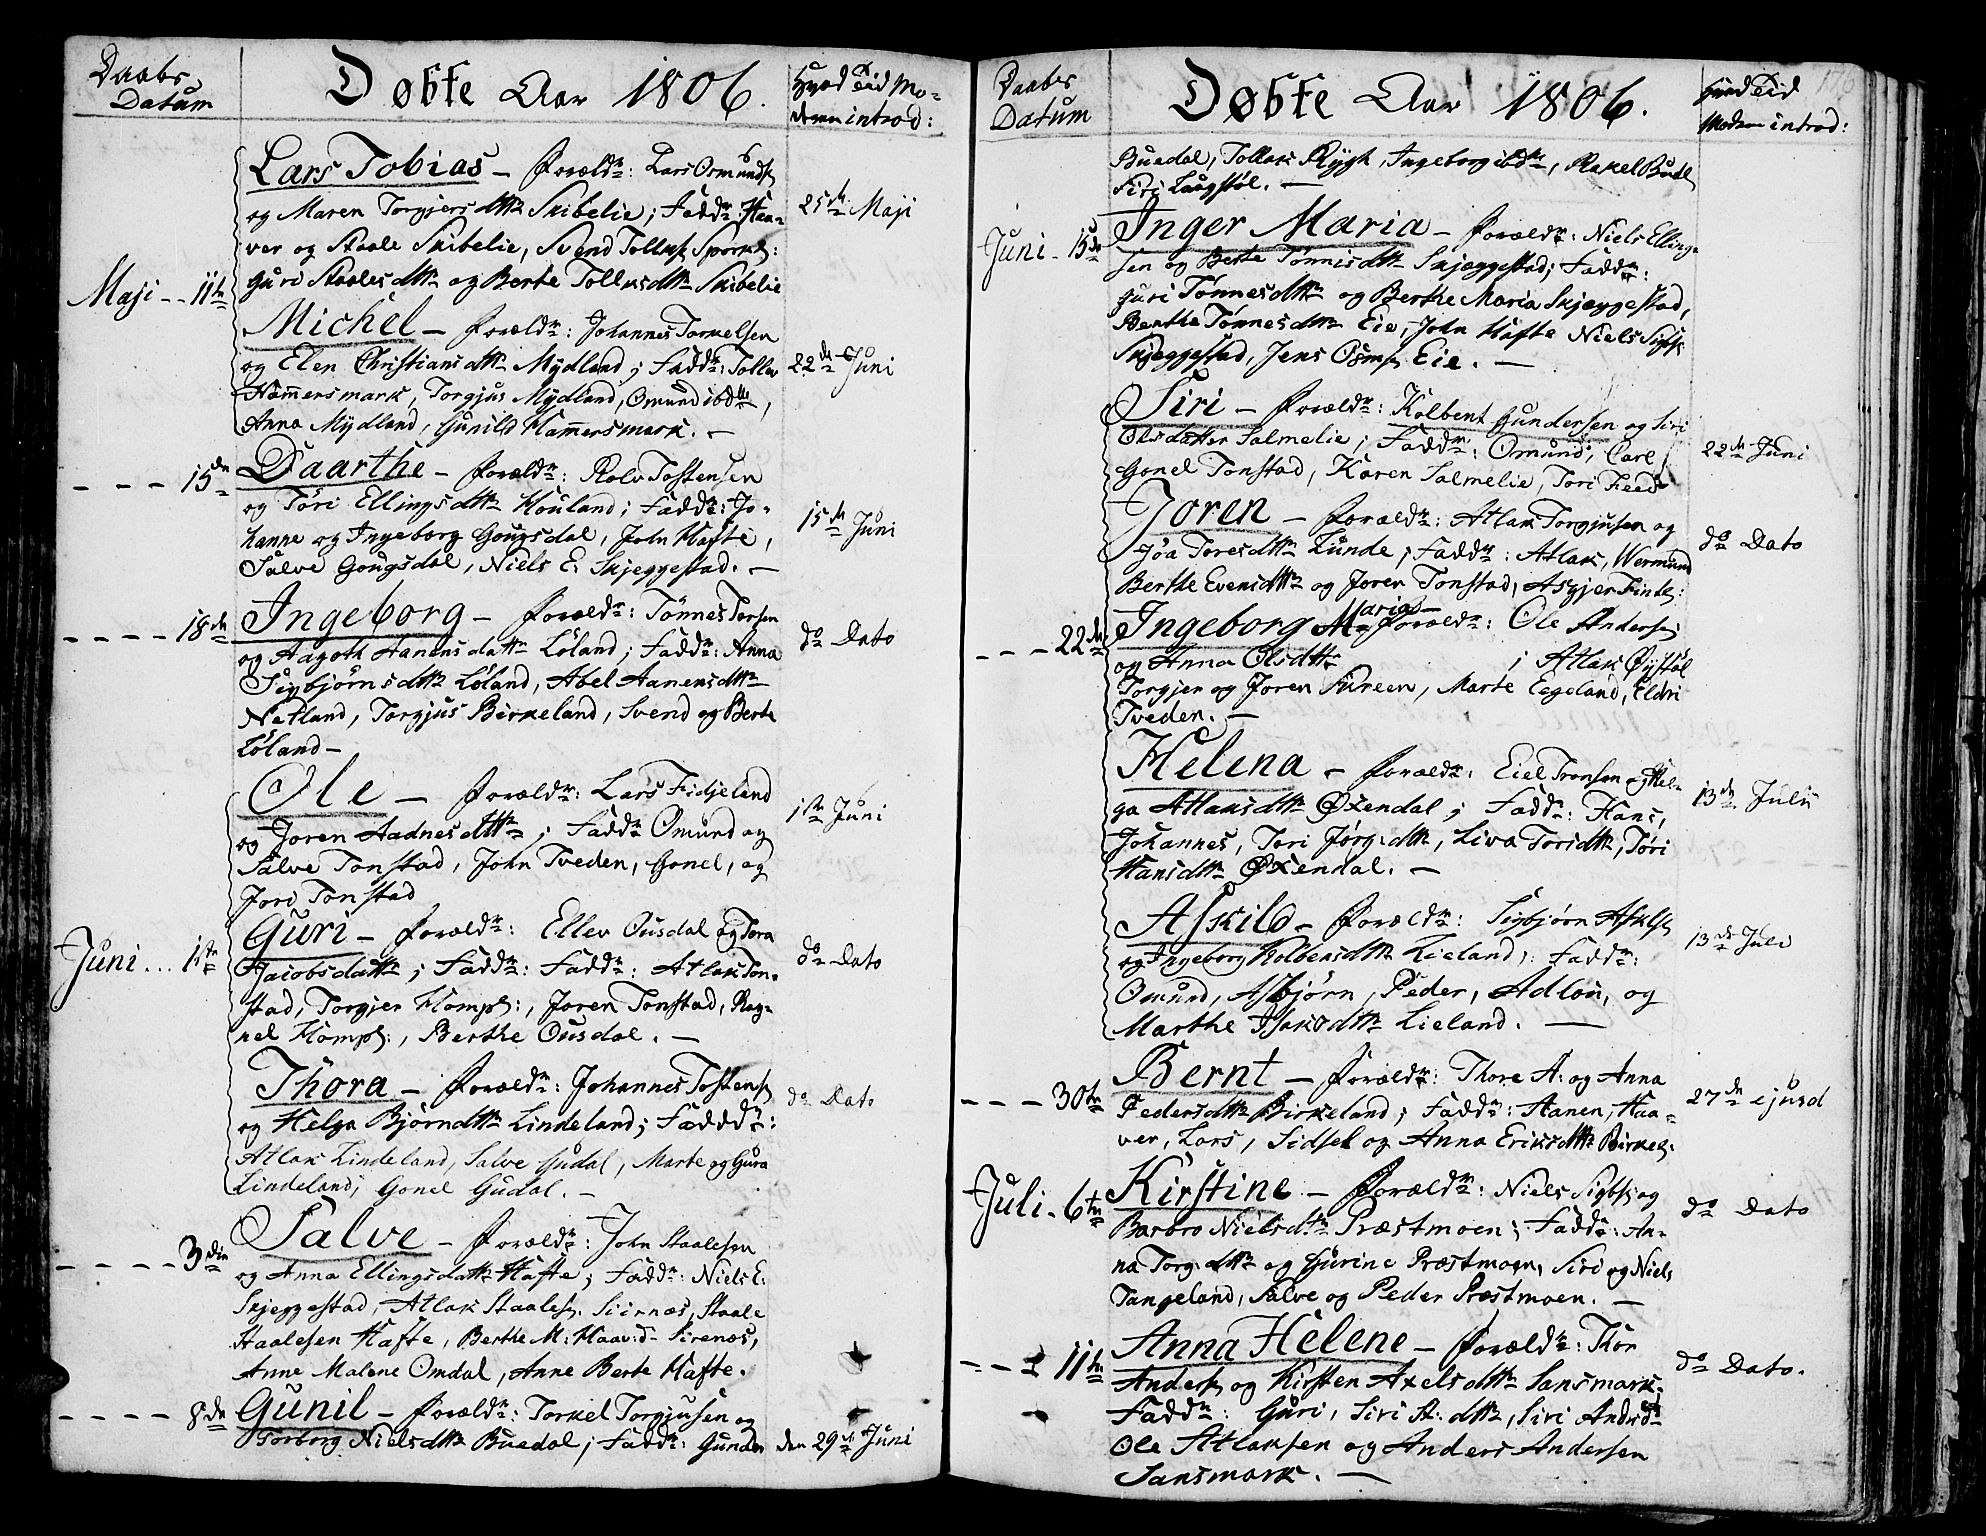 Daabs
Datum
Døbte Aar 1806.
Hvad Tid Mo-
deren introd:
Lars Tobias – Foræld: Lars Osmunds
og Maren Torgjersdttr Skibelie; Fadd: Haa-
25de Maji
ver og Staale Skibelie, Svend Tollufs
Maji -- 11te
Guri Staalesdttr og Berte Tollusdttr Skibelie
Michel – Foræld: Johannes Torkelsen
og Elen Christiansdttr Mydland; Fadd: Tollu
22de Juni
Hamersmark, Torgjus Mydland, Omund ibd,
Anna Mydland, Gunild Hamersmark. –
- - - - 15de
Daarthe – Foræld: Rolv Tostensen
og Tori Ellingsdttr Houland; Fadd: Jo-
15de Juni
hanne og Ingeborg Gougsdal, John Hafte,
Salve Gougsdal, Niels E. Skjeggestad. –
- - - - 18de
Ingeborg – Foræld: Tönnes Torsen
og Aagoth Aanensdattr Löland; Fadd: Anna
do Dato
Sigbjørnsdttr Löland, Abel Aanensdttr
Netland, Torgjus Birkeland, Svend og Berte
Löland –
Ole – Foræld: Lars Fidjeland
1ste Juni
og Joren Aadnesdttr; Fadd: Omund og
Salve Tonstad, John Tveden, Gonel, og
Jori Tonstad
Juni... 1ste
Guri – Foræld: Ellev Ousdal og Tora
Jacobsdattr; Fadd: Fadd: Atlak Ton-
do Dato
stad, Torgjer Homps:, Joren Tonstad, Rag-
nel Homps:, Berthe Ousdal. –
Thora – Foræld: Johannes Tostens
do Dato
og Helga Bjørndttr Lindeland; Faddd:
Atlak Lindeland, Salve Gudal, Marte og Gura
Lindeland; Gonel Gudal. –
- - - - - 3die
Salve – Foræld: John Staalesen
og Anna Ellingsdattr Hafte; Fadd: Niels E:
Skjeggestad, Atlak Staales. Siirnæs, Staale
Staalesen Hafte, Berthe M: Haav:d– Sirenæs,
Anne Malene Omdal, Anne Berte Hafte.
- - - - 8de
Gunil – Foræld: Torkel Torgjusen og
Torborg Nielsdttr Buedal; Fadd: Gunder
den 29de Juni
Daabs
Datum
Døbte Aar 1806.
Hvad Tid
Moderen introd:
176
Buedal, Tollak Rygh, Ingeborg ibd, Rakel Bued
Siri Laagstøl. –
Juni - 15de
Inger Maria – Foræld: Niels Elling-
sen og Berte Tönnisdttr Skjeggestad; Fadd:
Guri Tönnesdttr og Berthe Maria Skjeggestad,
Berthe Tönnesdttr Eie, John Hafte Niels Sigbs
Skjeggestad, Jens Osmss Eie. –
Siri – Foræld: Kolbent Gundersen og Siri
Olsdatter Salmelie; Fadd: Omund, Carl
22de Juni
Gonel Tonstad, Karen Salmelie, Tori Feed
Joren – Foræld: Atlak Torgjusen og
Jöa Toresdttr Lunde; Fadd: Atlak, Wermund
do Dato
Berthe Evensdttr og Joren Tonstad, Asgjer Finds:
- - - 22de
Ingeborg Maria – Foræld: Ole Anders
og Anna Olsdttr ; Atlak Øystøl
Torgjer og Joren Fureen, Marte Eegeland, Eldri
Tveden. –
Helena – Foræld: Eiel Tronsen og Hel-
13de Julii
ga Atlaksdttr Øxendal; Fadd: Hans,
Johannes, Tori Jörg:dttr, Liva Toridttr, Tori
Hansdttr Øxendal. –
Askild – Foræld: Sigbjørn Askels
13de Juli
og Ingeborg Kolbensdttr Lieland; Fadd:
Omund, Asbjörn, Peder, Adlou, og
Marthe Isaksdttr Lieland. –
- - - 30te
Bernt – Foræld: Thore A: og Anna
27de ejusd
Pedersdttr Birkeland; Fadd: Aanen, Haa-
ver, Lars, Sidsel og Anna Eriksdttr Birkel:
Juli - 6te
Kirstine – Foræld: Niels Sigbs og
do Dato
Barbro Nielsdtr Præstmoen; Fadd: An-
na Torg:dttr og Gurine Præstmoen, Siri og Niels
Tangeland, Salve og Peder Præstmoen. –
- - - 11te
Anna Helene – Foræld: Thor
do Dato.
Anders og Kirsten Axelsdttr Sansmark;
Fadd: Guri, Siri A: dttr, Siri Andsd
Ole Atlaksen og Anders Andersen
Sansmark. –